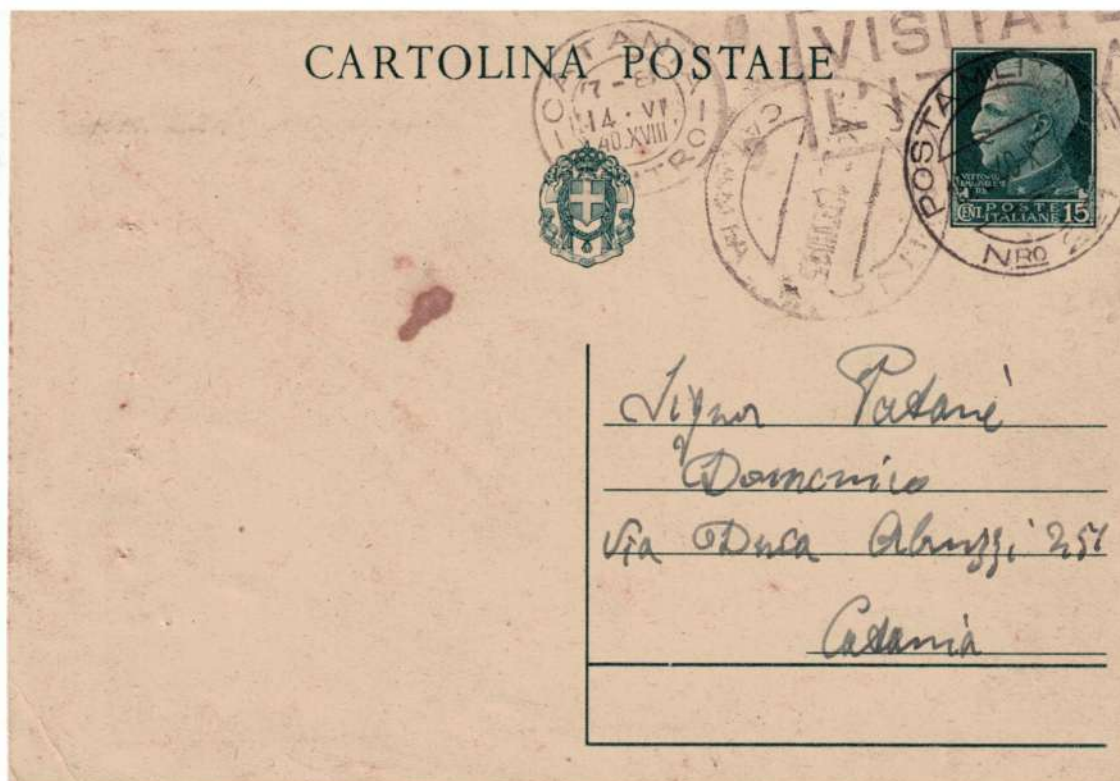 CARTOLINA POSTALE
VISITATE
L'IT
CATANIA
CENTRO
7-8
14·VI
40.XVIII
POSTA MILITARE
NRO
VITTORIO
EMANUELE
III
CENT. POSTE
ITALIANE 15
Signor Patanè
Domenico
Via Duca Abruzzi 251
Catania